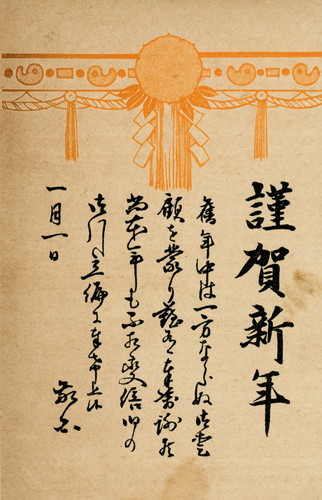 謹賀新年
舊年中は一方ならぬ御愛
顧を蒙り難有奉萬謝候
尚本年も不相變倍旧の
御引立偏に奉希上候
敬白
一月一日